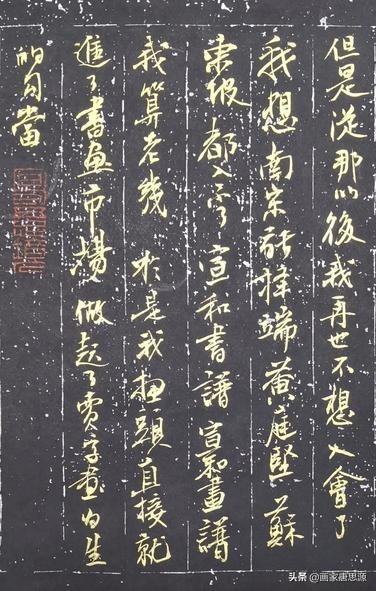 但是从那以後我再也不想入會了
我想南宋張擇端黄庭堅蘇
東坡都入不了宣和書譜宣和畫譜
我算老幾於是我扭頭直接就
進了書畫市場做起了賣字畫为生
的勾當
头条 @画家唐思源